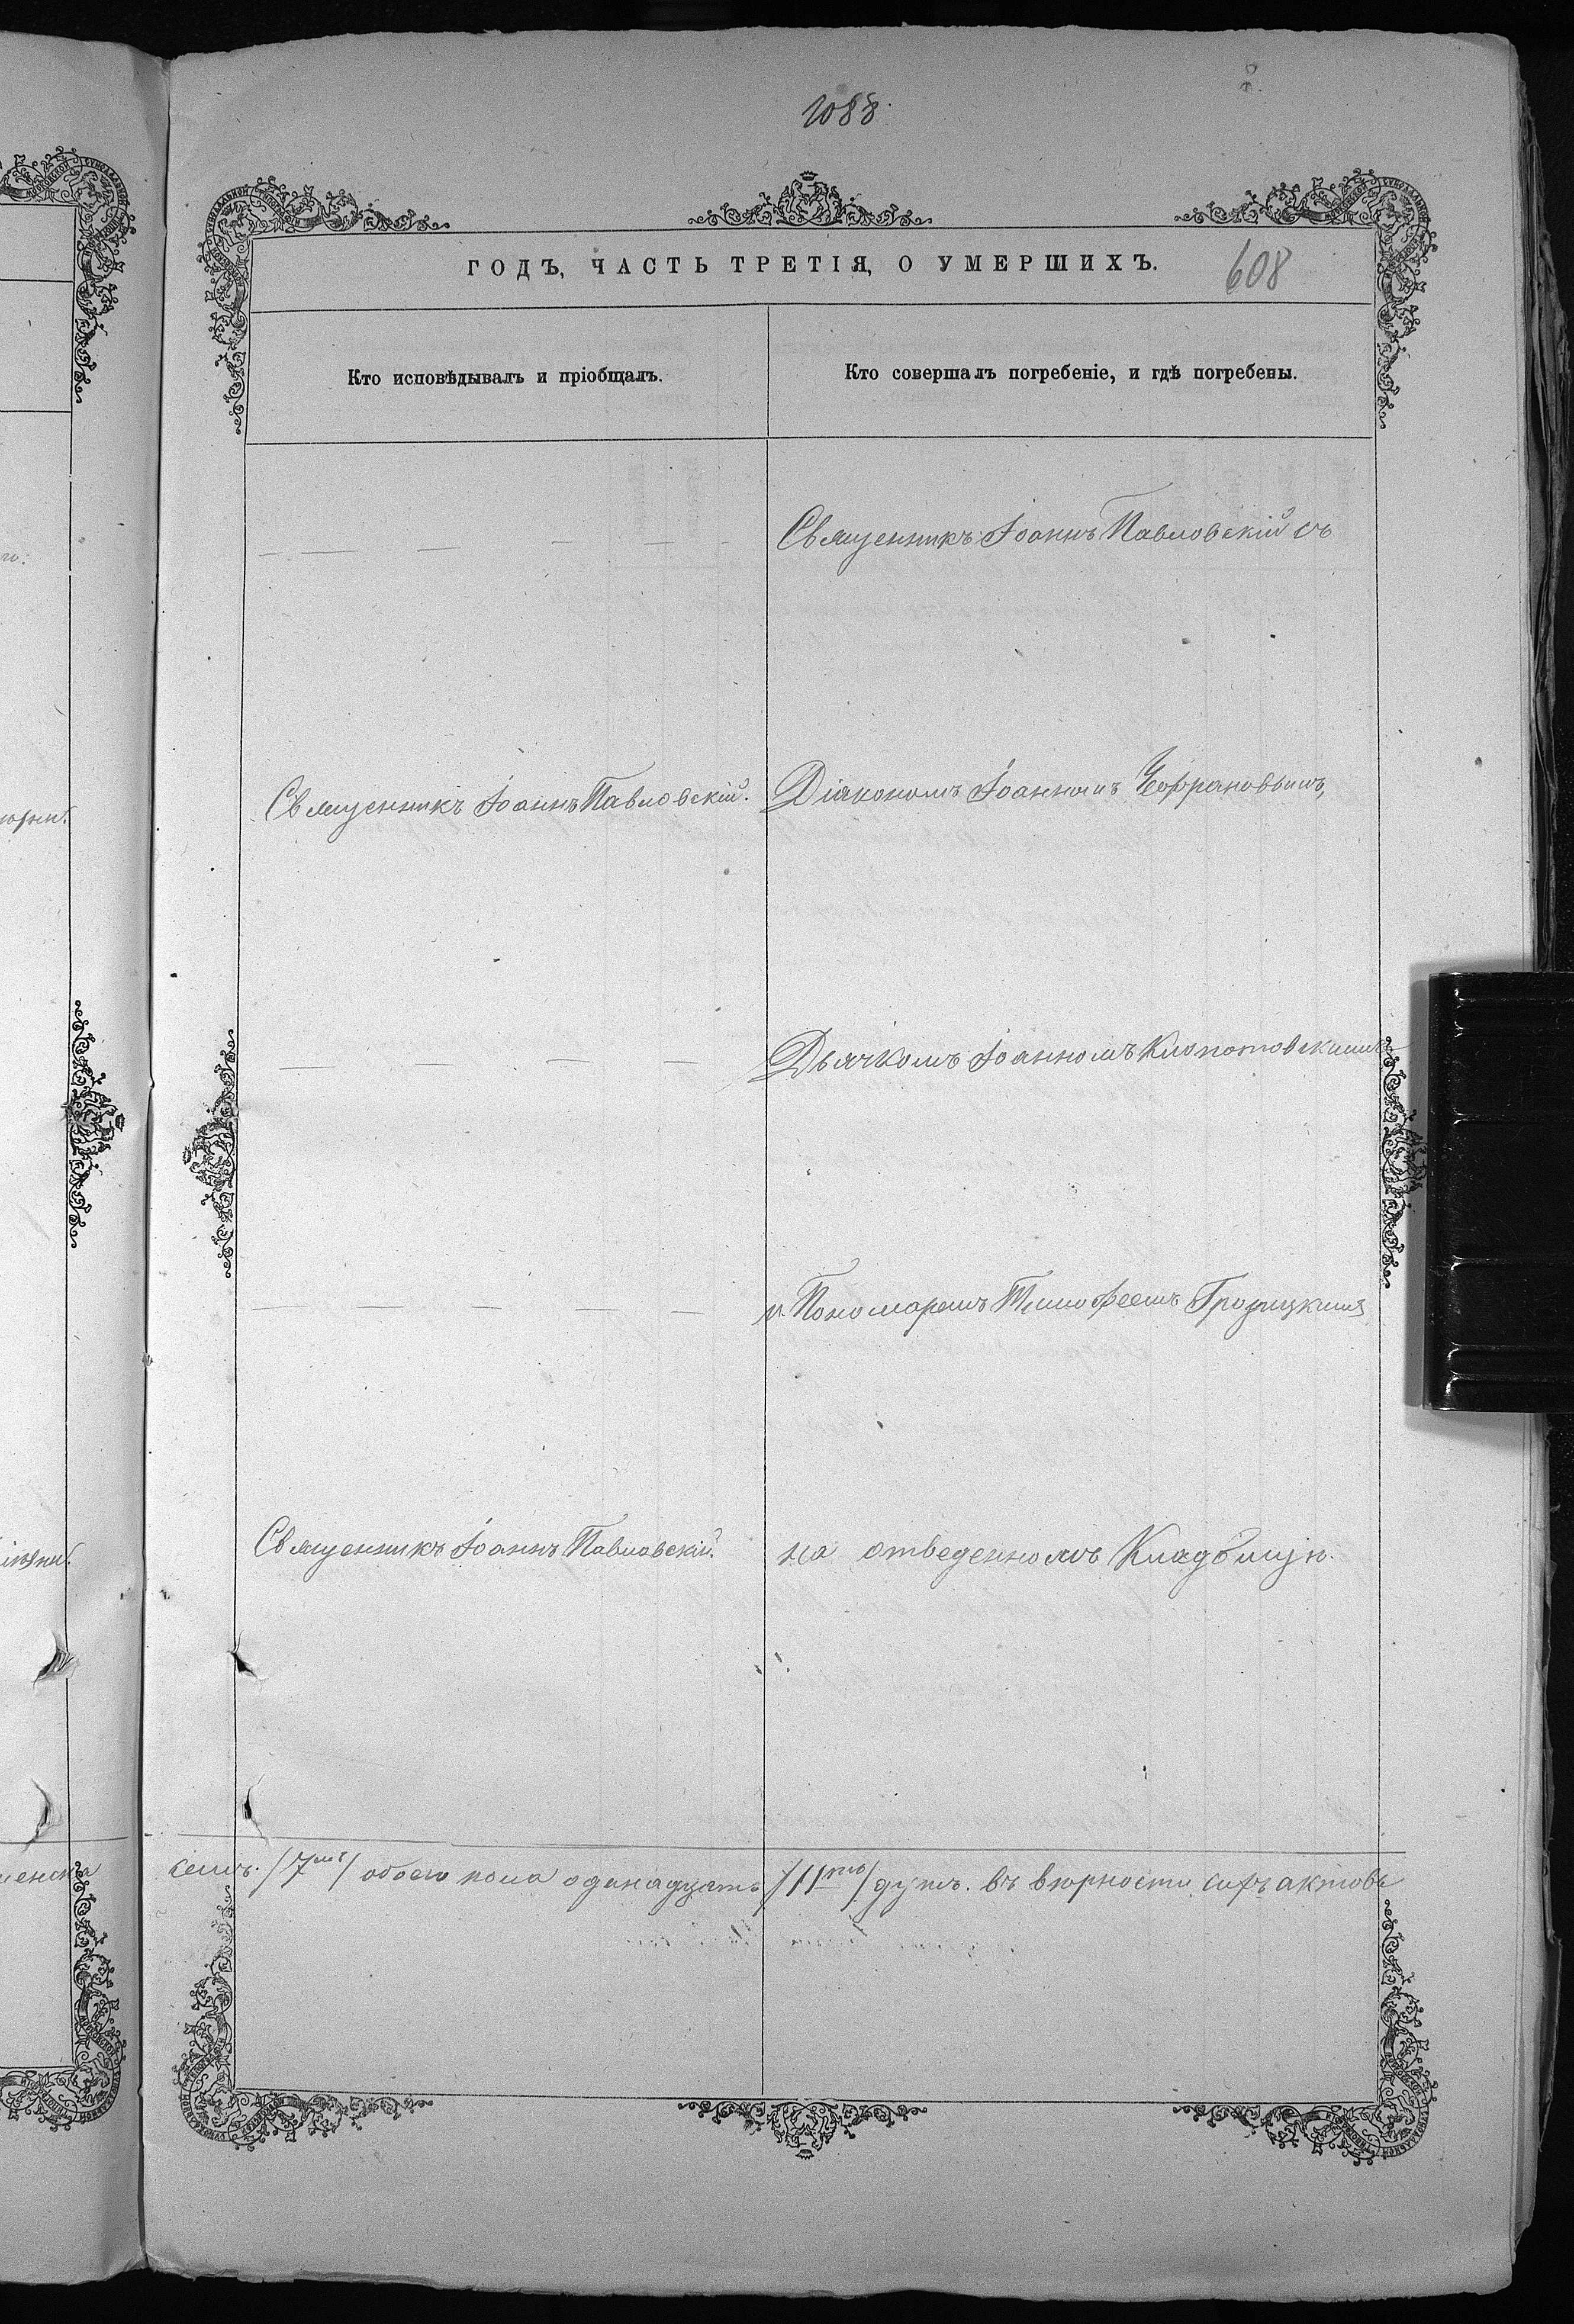 1088.
ГОДЪ, ЧАСТЬ ТРЕТІЯ, О УМЕРШИХЪ.
608
Кто исповѣдывалъ и пріобщалъ.
Кто совершалъ погребеніе, и гдѣ погребены.
Священникъ Іоаннъ Павловскій съ
Священникъ Іоаннъ Павловскій.
Діакономъ Іоанномъ
Дьячкомъ Іоанномъ Клопотовскимъ
и Пономаремъ Тимофеемъ
Священникъ Іоаннъ Павловскій.
на отведенномъ Кладбищѣ.
семь. /7мь/ обоего пола одинадцать /11ть/ душъ. въ вѣрности сихъ актовъ